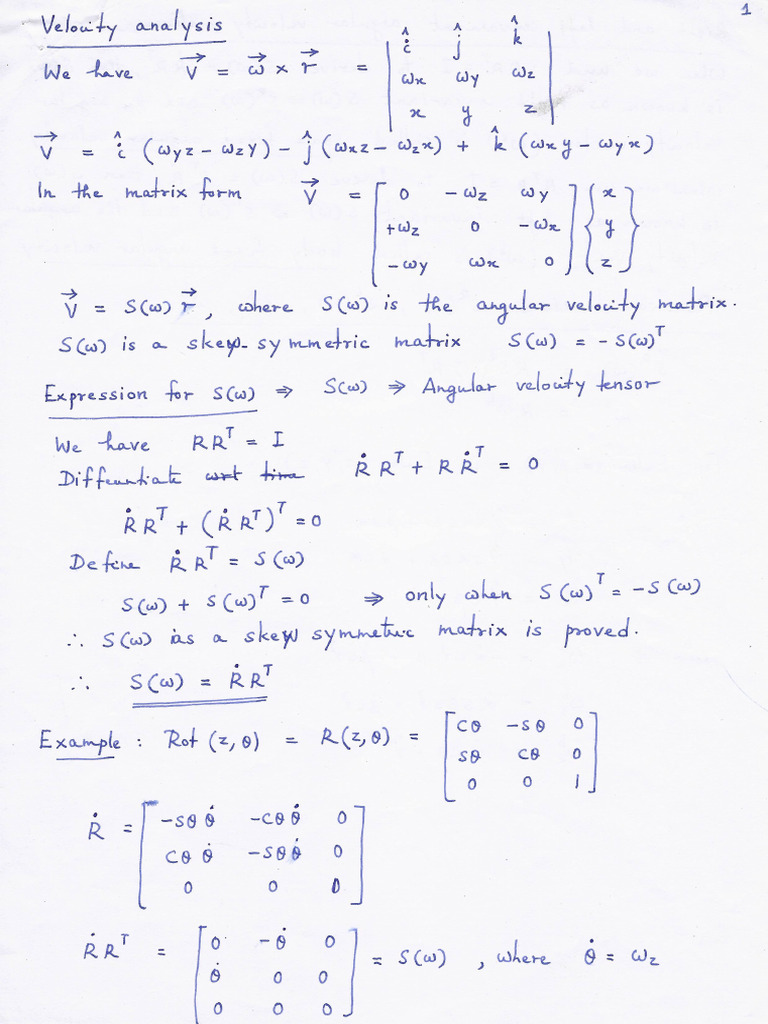 1
Velocity analysis
We have V⃗ = ω⃗ × r⃗ = | î ĵ k̂ |
| ωx ωy ωz |
| x y z |
V⃗ = î (ωyz − ωzy) − ĵ (ωxz − ωzx) + k̂ (ωxy − ωyx)
In the matrix form V⃗ = [ 0 −ωz ωy ] { x }
[ +ωz 0 −ωx ] { y }
[ −ωy ωx 0 ] { z }
V⃗ = S(ω) r⃗, where S(ω) is the angular velocity matrix.
S(ω) is a skew-symmetric matrix S(ω) = −S(ω)ᵀ
Expression for S(ω) ⇒ S(ω) ⇒ Angular velocity tensor
We have RRᵀ = I
Differentiate wrt time Ṙ Rᵀ + R Ṙᵀ = 0
Ṙ Rᵀ + (Ṙ Rᵀ)ᵀ = 0
Define Ṙ Rᵀ = S(ω)
S(ω) + S(ω)ᵀ = 0 ⇒ only when S(ω)ᵀ = −S(ω)
∴ S(ω) as a skew symmetric matrix is proved.
∴ S(ω) = Ṙ Rᵀ
Example : Rot (z, θ) = R(z, θ) = [ Cθ −Sθ 0 ]
[ Sθ Cθ 0 ]
[ 0 0 1 ]
Ṙ = [ −Sθ θ̇ −Cθ θ̇ 0 ]
[ Cθ θ̇ −Sθ θ̇ 0 ]
[ 0 0 0 ]
Ṙ Rᵀ = [ 0 −θ̇ 0 ] = S(ω), where θ̇ = ωz
[ θ̇ 0 0 ]
[ 0 0 0 ]